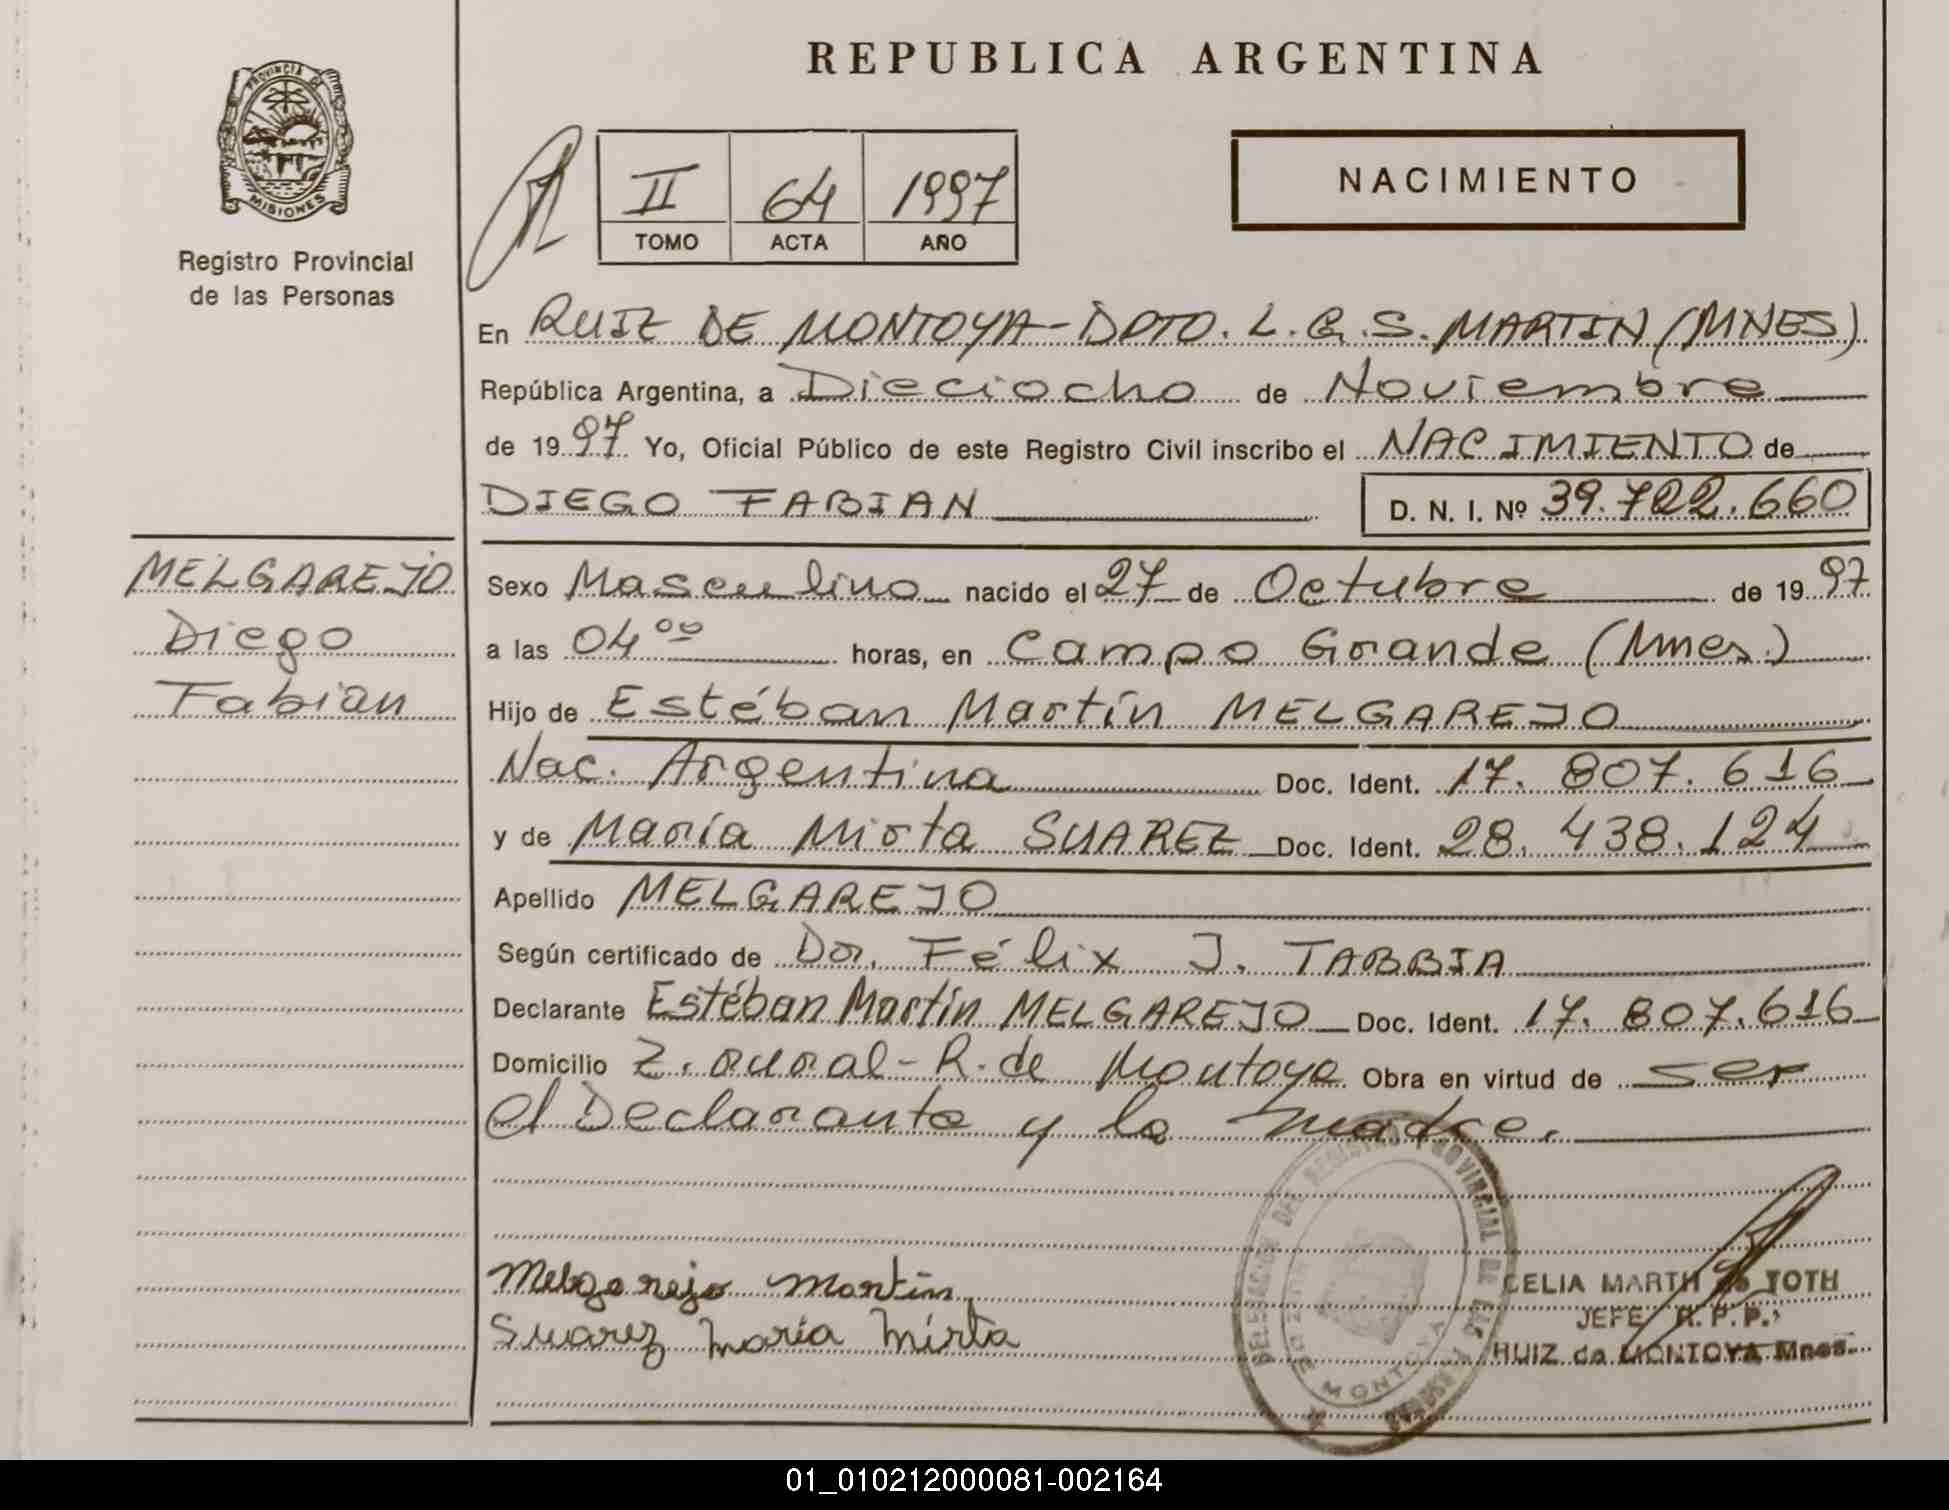 REPUBLICA ARGENTINA
PROVINCIA DE
MISIONES
Registro Provincial
de las Personas
II 64 1997
TOMO ACTA AÑO
NACIMIENTO
En RUIZ DE MONTOYA-DPTO. L.G.S. MARTIN (MNES)
República Argentina, a Dieciocho de Noviembre
de 1997 Yo, Oficial Público de este Registro Civil inscribo el NACIMIENTO de
DIEGO FABIAN D. N. I. Nº 39.722.660
MELGAREJO
Diego
Fabian
Sexo Masculino nacido el 27 de Octubre de 1997
a las 04 00 horas, en Campo Grande (Mnes.)
Hijo de Estéban Martín MELGAREJO
Nac. Argentina Doc. Ident. 17.807.616
y de María Mirta SUAREZ Doc. Ident. 28.438.124
Apellido MELGAREJO
Según certificado de Dr. Félix J. TABBIA
Declarante Estéban Martín MELGAREJO Doc. Ident. 17.807.616
Domicilio Z. rural-R. de Montoya Obra en virtud de ser
el Declarante y la madre.
Melgarejo Martín
Suarez María Mirta
DELEGACION DEL REGISTRO PROVINCIAL DE LAS PERSONAS
RUIZ DE MONTOYA
CELIA MARTH de TOTH
JEFE R.P.P.
RUIZ de MONTOYA Mnes.
01_010212000081-002164